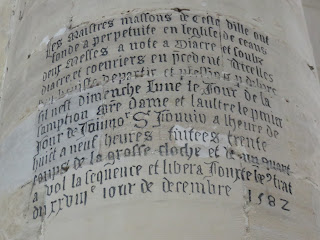 Les Maistres massons de ceste ville ont
fonde a perpetuite en leglise de ceans
deux Messes a note a Diacre et soubz
diacre et coeuriers en precedent dicelles
departir et
il nest dimenche lune le Jour de la
sumption nre dame et laultre le prim
Jour de Jainv S Jouuin a lheure de
huict a neuf heures tintees trente
coups de la grosse cloche et quart
a vol la sequence et libera
du xxviii e iour de decembre 1582